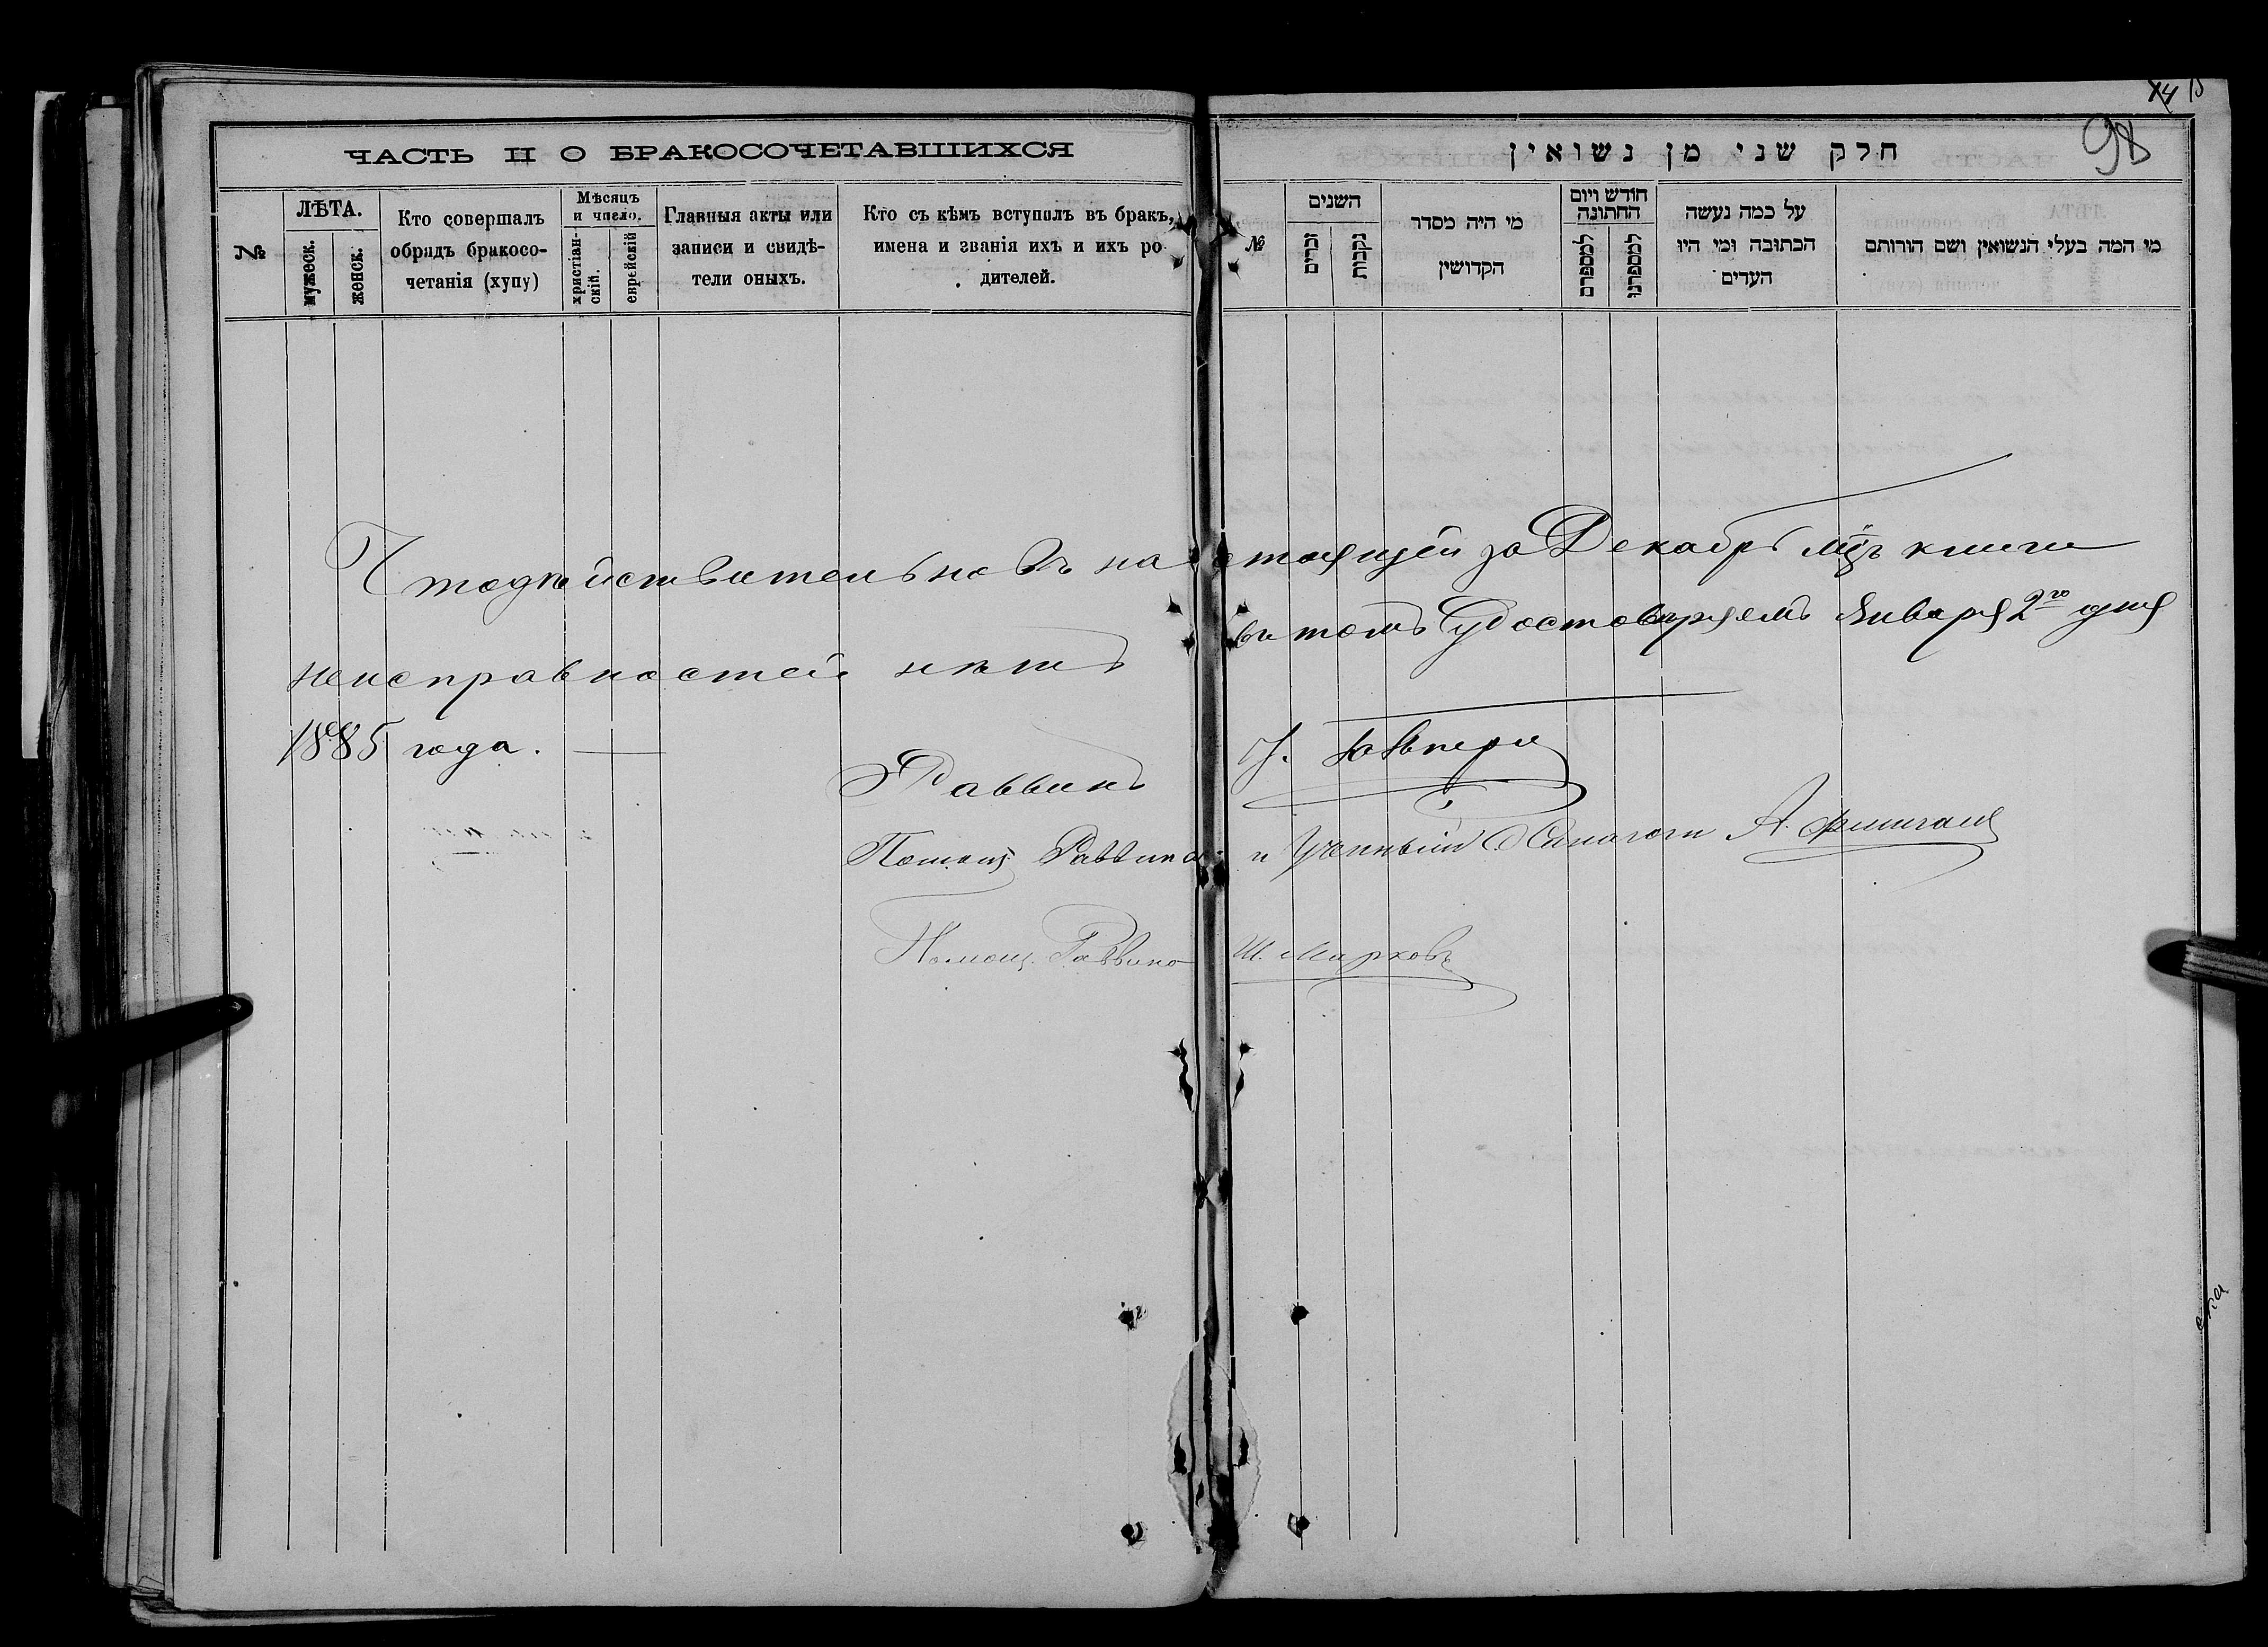 ЧАСТЬ II О БРАКОСОЧЕТАВШИХСЯ
№
ЛѢТА.
мужеск.
женск.
Кто совершалъ
обрядъ бракосо-
четанія (хупу)
Мѣсяцъ
и число.
христіан-
скій.
еврейскій
Главныя акты или
записи и свидѣ-
тели оныхъ.
Кто съ кѣмъ вступилъ въ бракъ,
имена и званія ихъ и ихъ ро
дителей.
חלק שני מן נשואין
98
№
השנים
זכרים
נקבות
מי היה מסדר
הקדושין
חודש ויום
החתונה
למספרם
למספרנו
על כמה נעשה
הכתובה ומי היו
העדים
מי המה בעלי הנשואין ושם הורותם
Что дѣйствительно въ настоящей за Декабрь мцъ книги
неисправностей нѣтъ въ томъ Удостовѣряемъ Января 2го дня
1885 года.
Раввинъ
Помощ. Раввина и Ученный Синагоги А.
Помощ. Раввина Ш. Марковъ